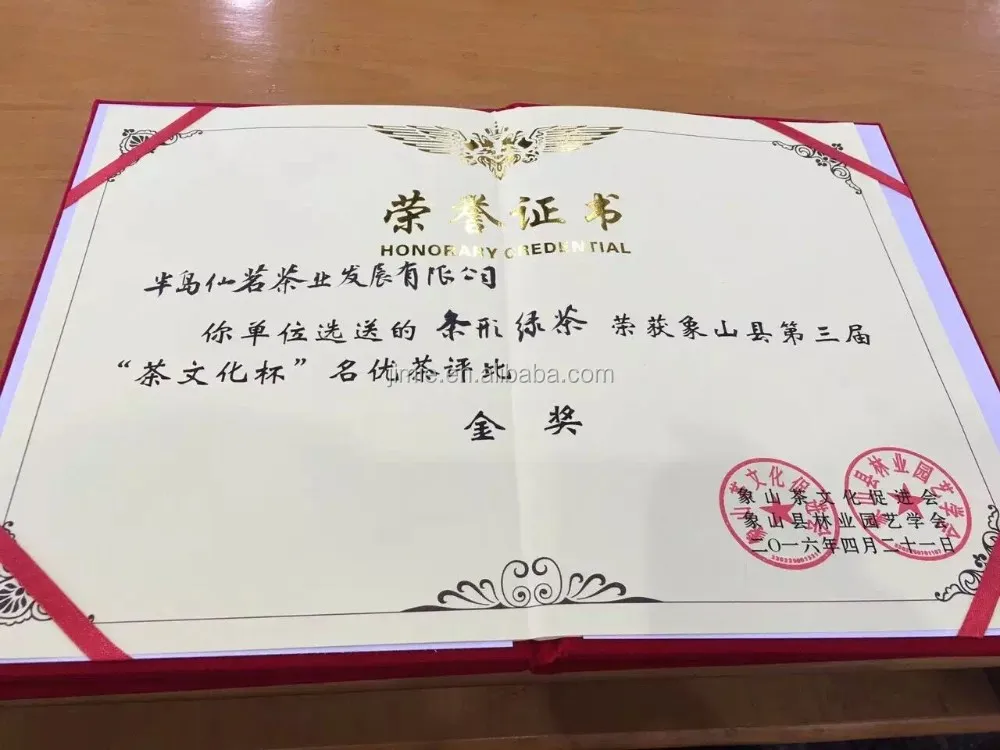 荣誉证书
HONORARY CREDENTIAL
半岛仙茗茶业发展有限公司
你单位选送的 条形绿茶 荣获象山县第三届
“茶文化杯”名优茶评比
jimie.en.alibaba.com
金 奖
象山茶文化促进会
象山县林业园艺学会
二〇一六年四月二十一日
象山茶文化促进会
象山县林业园艺学会